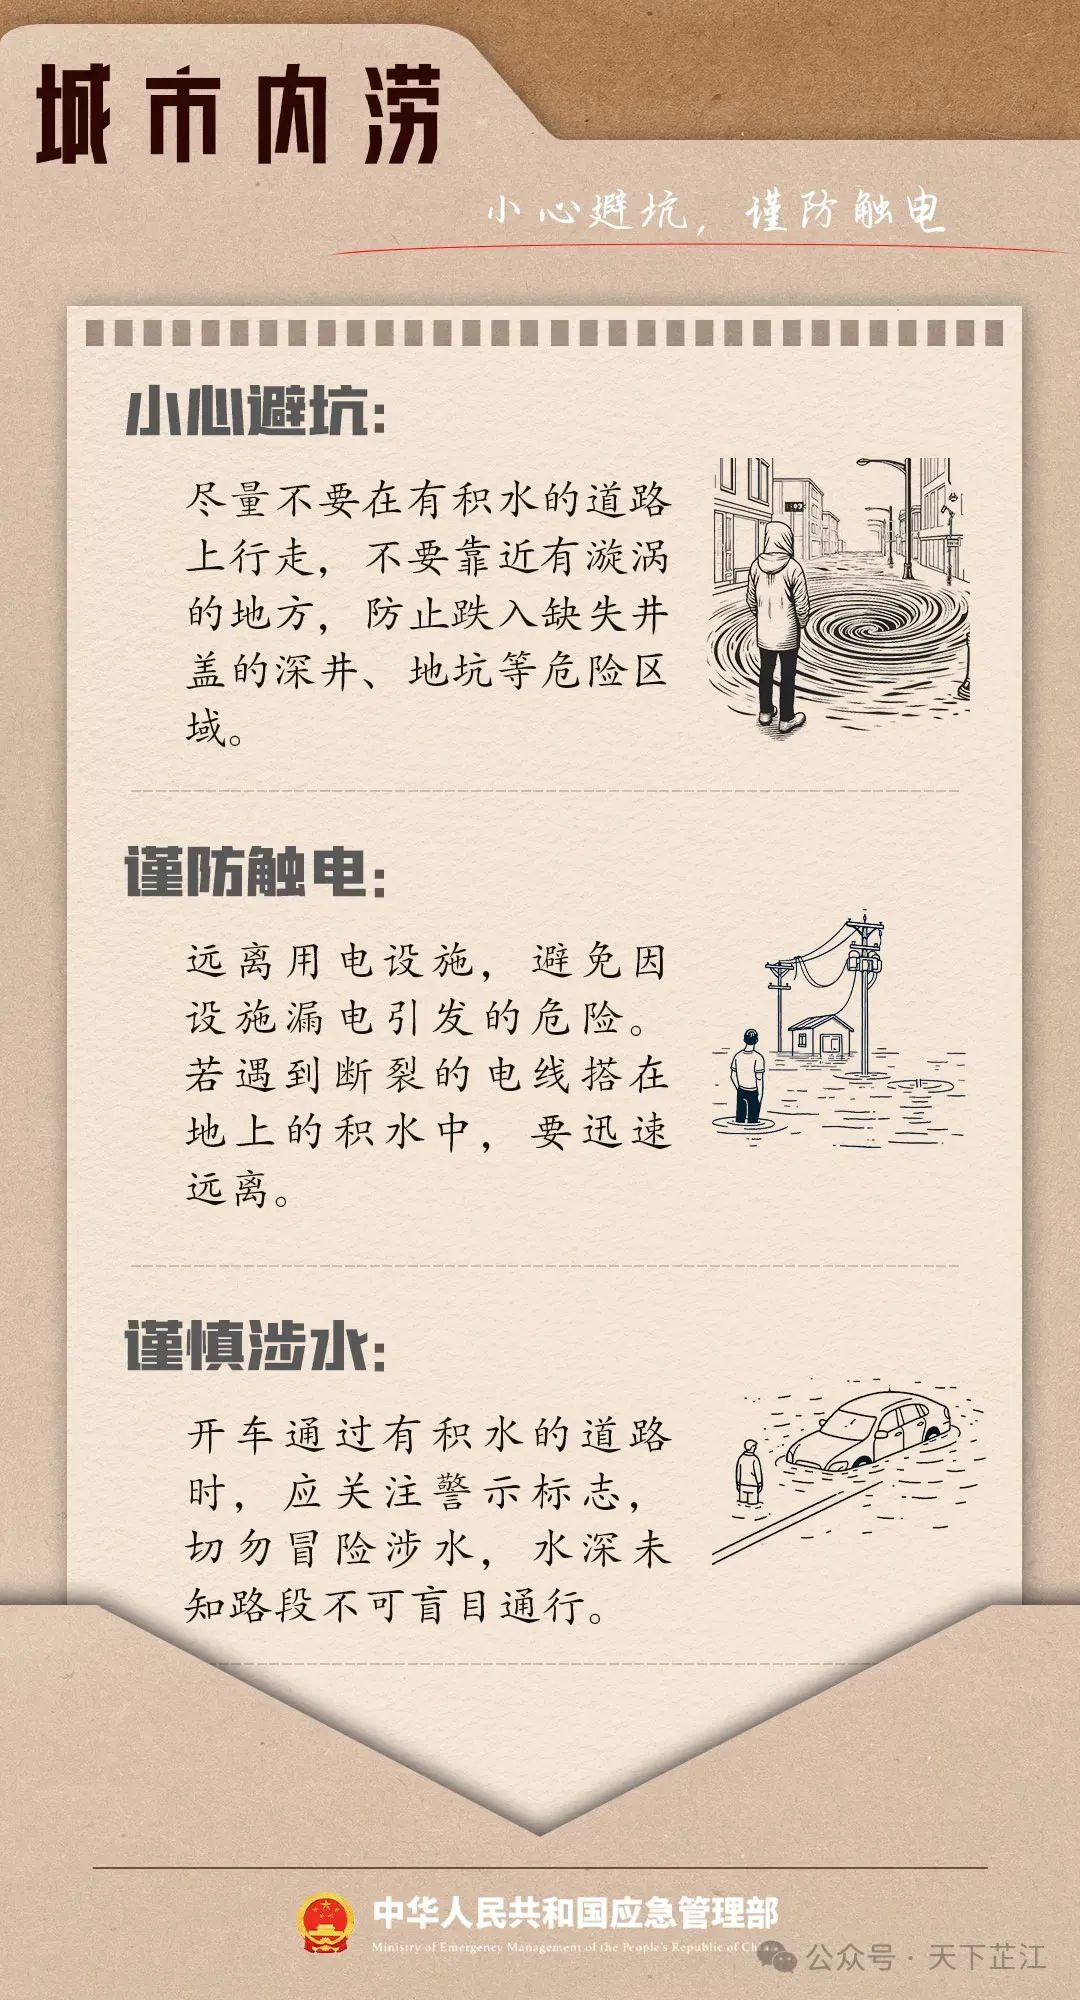 城市内涝
小心避坑，谨防触电
小心避坑：
尽量不要在有积水的道路
上行走，不要靠近有漩涡
的地方，防止跌入缺失井
盖的深井、地坑等危险区
域。
谨防触电：
远离用电设施，避免因
设施漏电引发的危险。
若遇到断裂的电线搭在
地上的积水中，要迅速
远离。
谨慎涉水：
开车通过有积水的道路
时，应关注警示标志，
切勿冒险涉水，水深未
知路段不可盲目通行。
中华人民共和国应急管理部
Ministry of Emergency Management of the People's Republic of
公众号·天下芷江